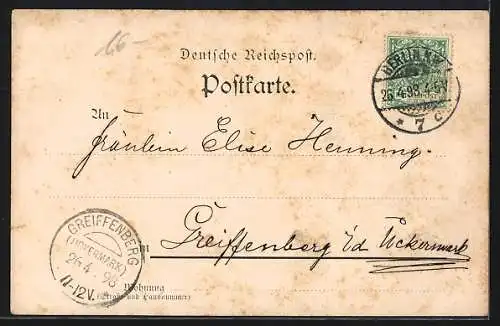 66-
Deutsche Reichspost.
Postkarte.
BERLIN N.W.
26.4.98.4-5N
* 7 c
An
Fräulein Elise Henning.
GREIFFENBERG
(UCKERMARK)
26.4 98
11-12V.
in Greiffenberg i/d Uckermark
Wohnung
(Straße und Hausnummer)